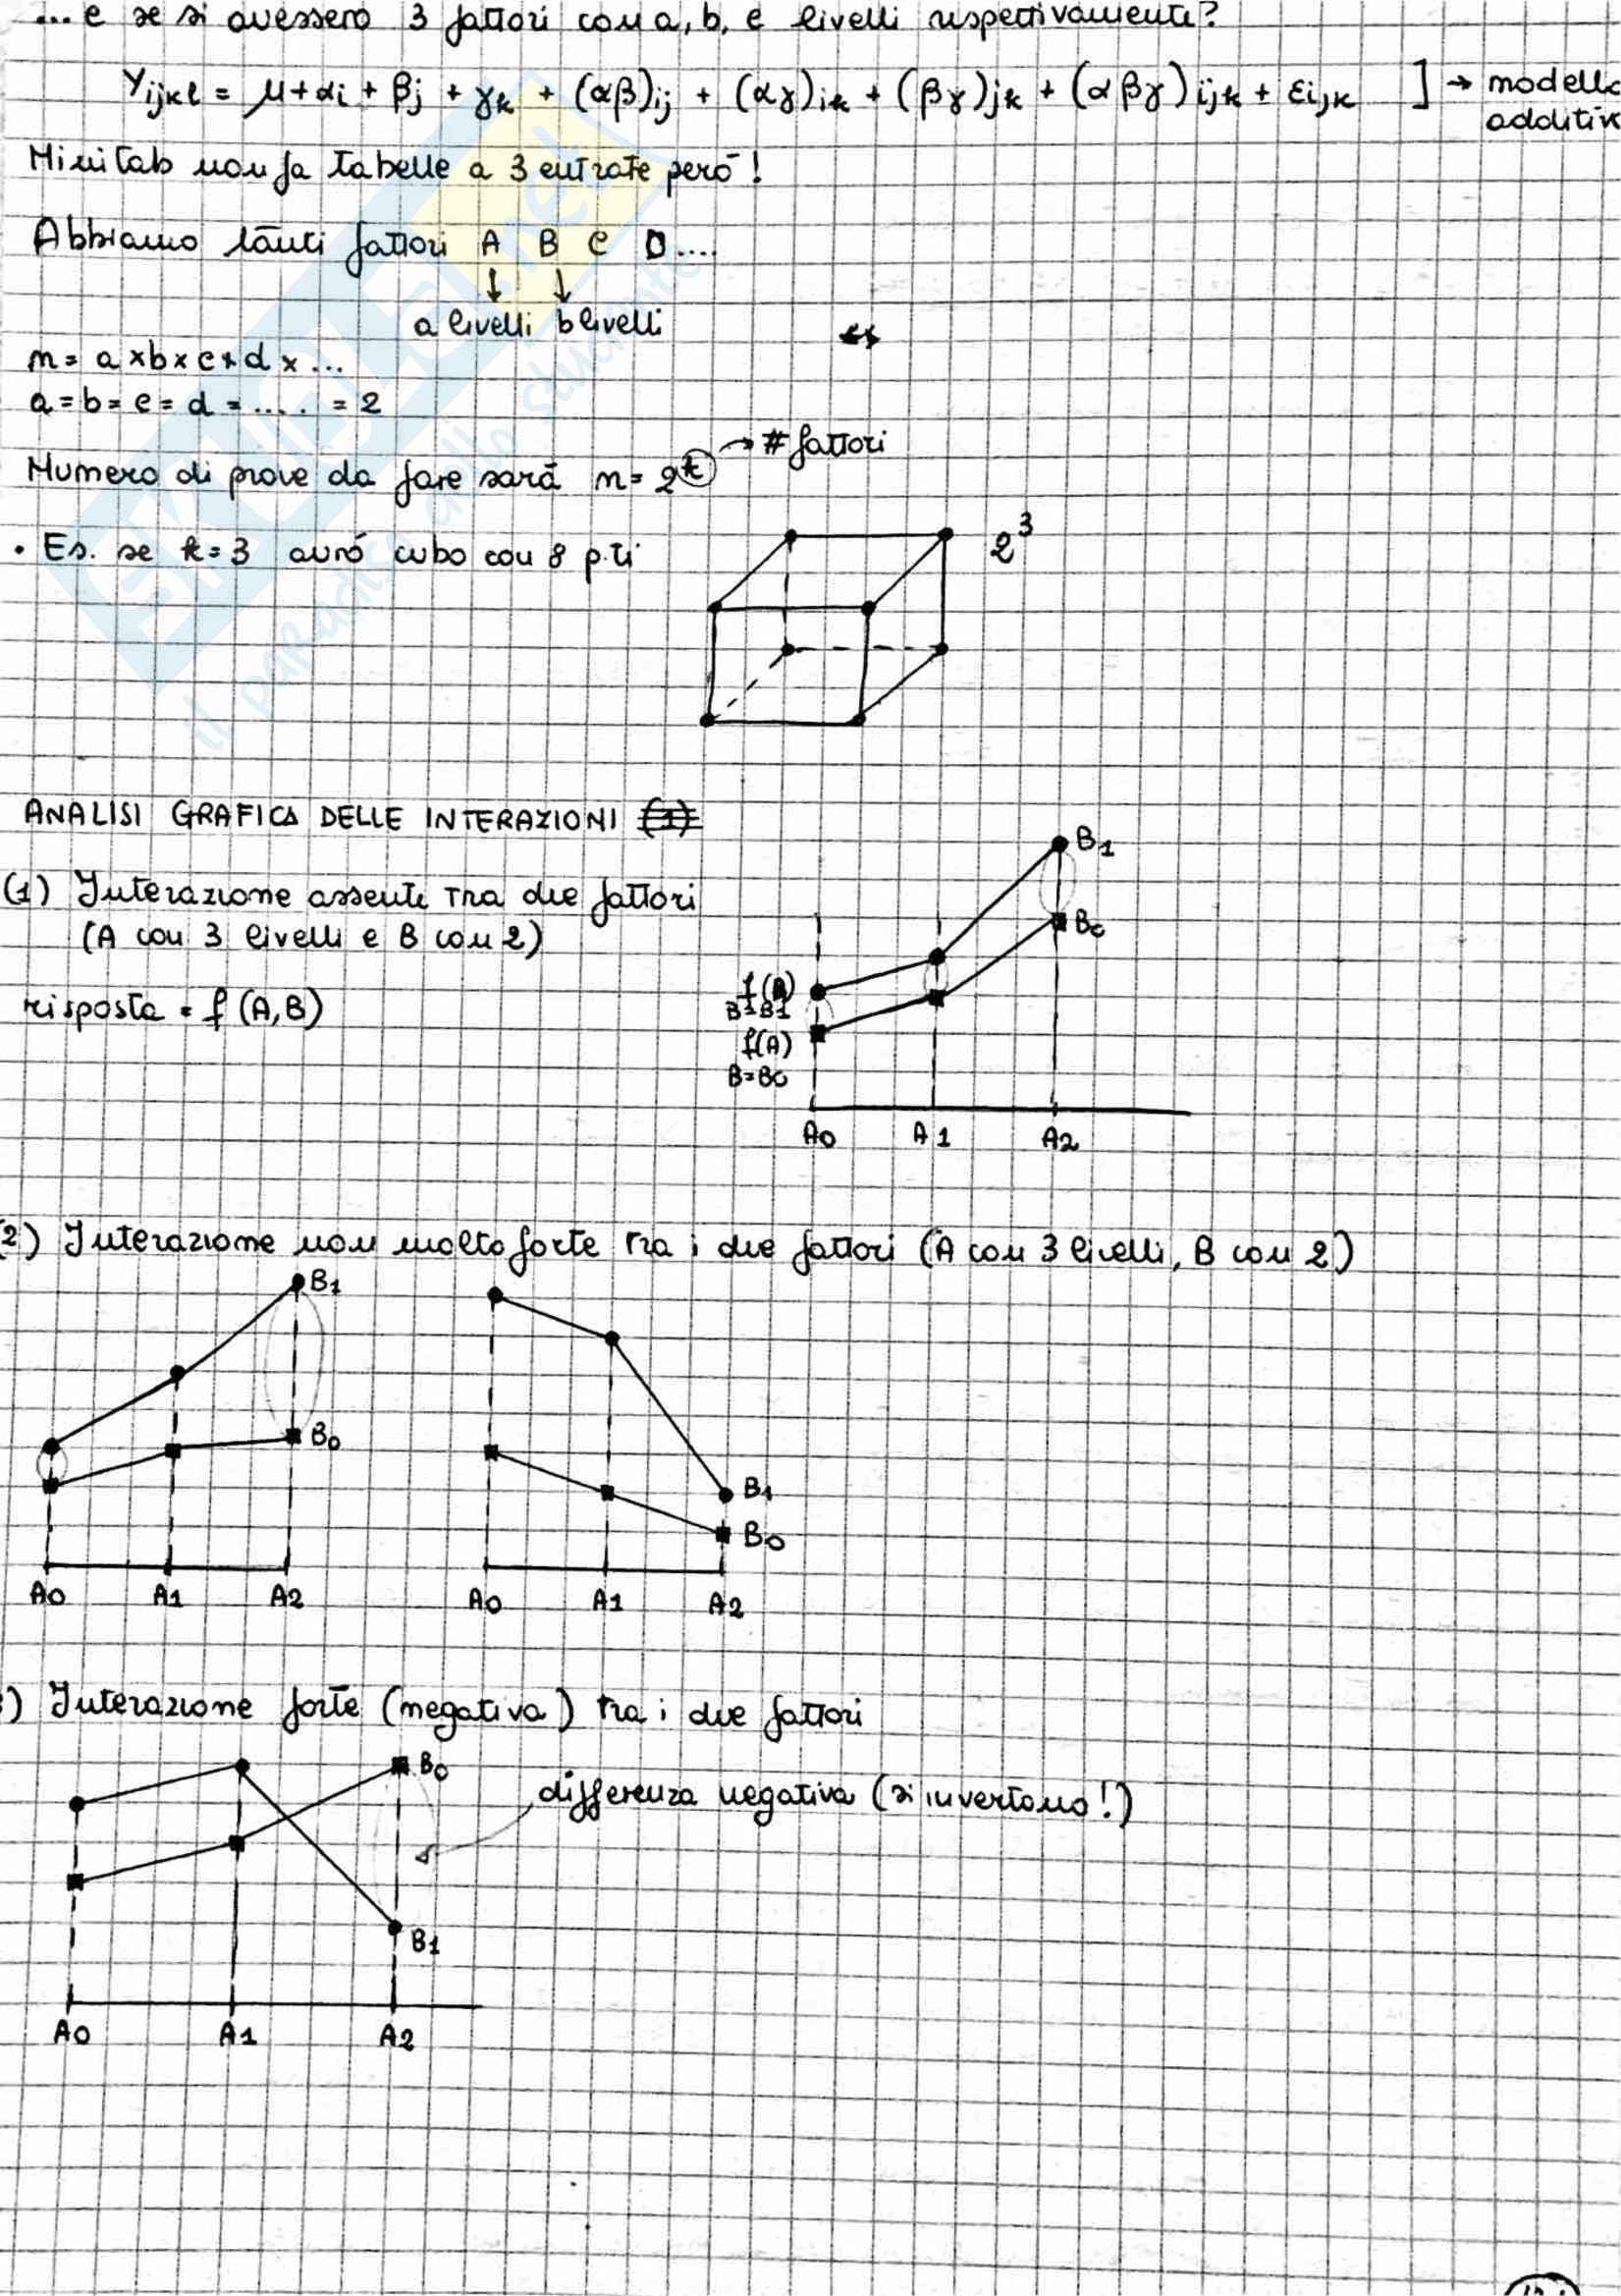 ... e se si avessero 3 fattori con a, b, c livelli rispettivamente?
Yijkl = μ + αi + βj + γk + (αβ)ij + (αγ)ik + (βγ)jk + (αβγ)ijk + εijk ] → modello
additiv
Minitab non fa tabelle a 3 entrate però!
Abbiamo tanti fattori A B C D....
↓ ↓
a livelli b livelli
n = a × b × c × d × ...
a = b = c = d = .... = 2
Numero di prove da fare sarà n = 2^k → # fattori
• Es. se k = 3 avrò cubo con 8 p.ti
2³
ANALISI GRAFICA DELLE INTERAZIONI (1)
(1) Interazione assente tra due fattori
(A con 3 livelli e B con 2)
risposta = f (A,B)
B1
B0
f(A)
B=B1
f(A)
B=B0
A0 A1 A2
2) Interazione non molto forte tra i due fattori (A con 3 livelli, B con 2)
B1
B0
B1
B0
A0 A1 A2 A0 A1 A2
) Interazione forte (negativa) tra i due fattori
B0
differenza negativa (si invertono!)
B1
A0 A1 A2
SKUOLA.net
il paradiso dello studente